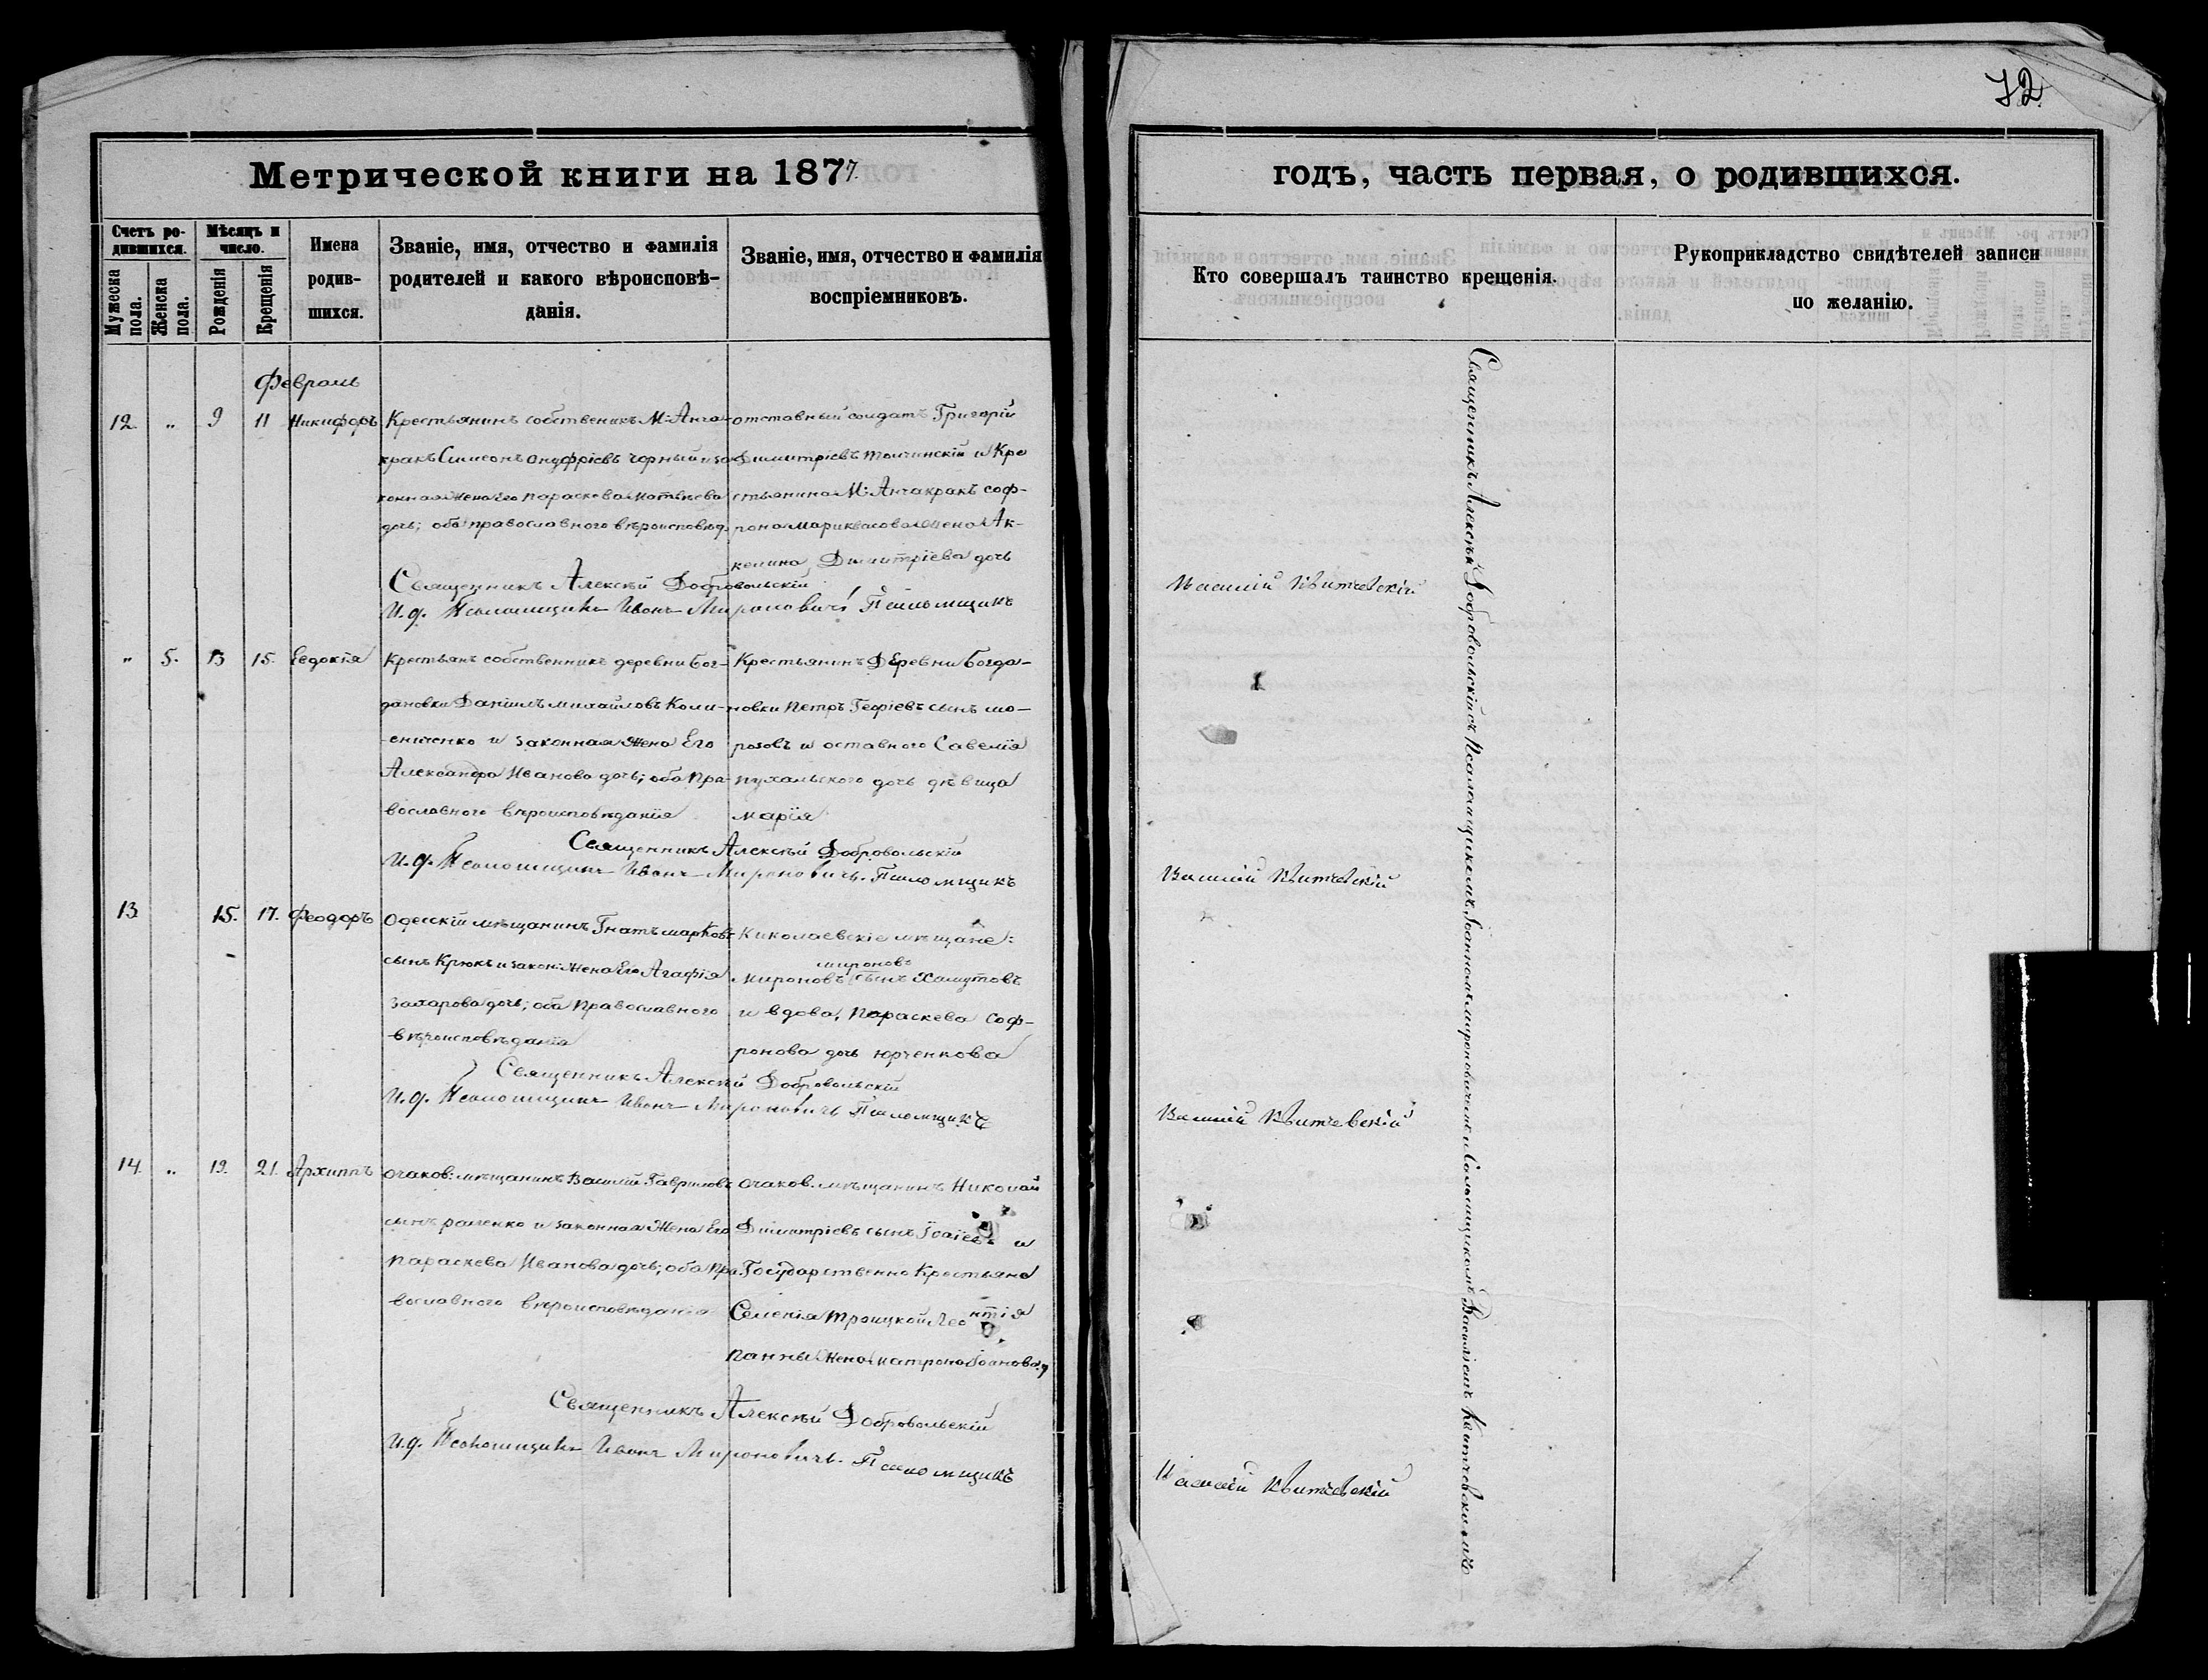 72
Метрической книги на 1877.
годъ, часть первая, о родившихся.
Счетъ родившихся.
Мужеска пола.
Женска пола.
Мѣсяцъ и число.
Рожденія
Крещенія
Имена родившихся.
Званіе, имя, отчество и фамилія
родителей и какого вѣроисповѣ-
данія.
Званіе, имя, отчество и фамилія
воспріемниковъ.
Кто совершалъ таинство крещенія.
Рукоприкладство свидѣтелей записи
по желанію.
Февраль
12. „ 9 11 Никифоръ
Крестьянинъ собственикъ М: Анча-
кракъ Симеонъ Онуфріевъ Чорный и за-
конная жена его Параскева Матвѣева
дочь; оба православного вѣроисповѣд.
отставный солдатъ Григорій
Димитріевъ Толчинскій и Кре
стьянина М: Анчакракъ Соф-
рона жена Ак-
келина Димитріева дочь
Священникъ Алексѣй Добровольскій
И.д. Псаломщика Иванъ Мироновичъ Псаломщикъ
Василій Квитчевскій
„ 5. 13 15. Евдокія
Крестьянъ собственникъ деревни Бог-
дановки Даніилъ Михайловъ Коли-
сниченко и законная жена Его
Александра Иванова дочь; оба пра-
вославного вѣроисповѣданія
Крестьянинъ Деревни Богда-
новки Петръ Георіевъ сынъ мо-
розовъ и оставного Савелія
Пухальского дочь дѣвица
марія
Священникъ Алексѣй Добровольскій
И.д. Псаломщика Иванъ Мироновичъ. Псаломщикъ
Василій Квитчевскій
13. 15. 17. Феодоръ
Одесскій мѣщанинъ Гнатъ марковъ
сынъ Крюкъ и закон: жена Его Агафія
Захарова дочь; оба Православного
вѣроисповѣданія
Николаевскіе мѣщане:
мироновъ
Мироновъ сынъ Хамутовъ
и вдова, Параскева Соф-
ронова дочь Юрченкова
Священникъ Алексѣй Добровольскій
И.д. Псаломщика Иванъ Мироновичъ Псаломщикъ
Василій Квитчевскій
14. „ 19. 21. Архиппъ
Очаков: мѣщанинъ Василій Гавриловъ
сынъ раленко и законная жена Его
Параскева Иванова дочь; оба пра-
вославного вѣроисповѣданія
очаков. мѣщанинъ Николай
Димитріевъ сынъ и
Государственно Крестьяне
Селенія Троицкой Леонтія
Панны жена матрона Іоанова д
Священникъ Алексѣй Добровольскій
И.д. Псаломщика Иванъ Мироновичъ. Псаломщикъ
Василій Квитчевскій
Священникъ Алексѣй Добровольскій съ Псаломщикомъ Іоанномъ Мироновичемъ и Псаломщикомъ Василіемъ Квитчевскимъ